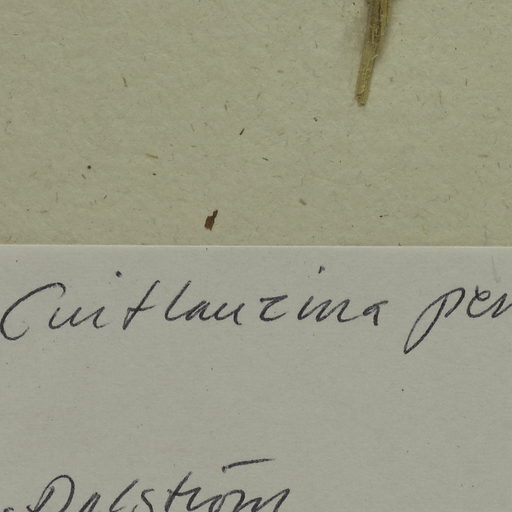 Cuitlauzina pen
. Dalström